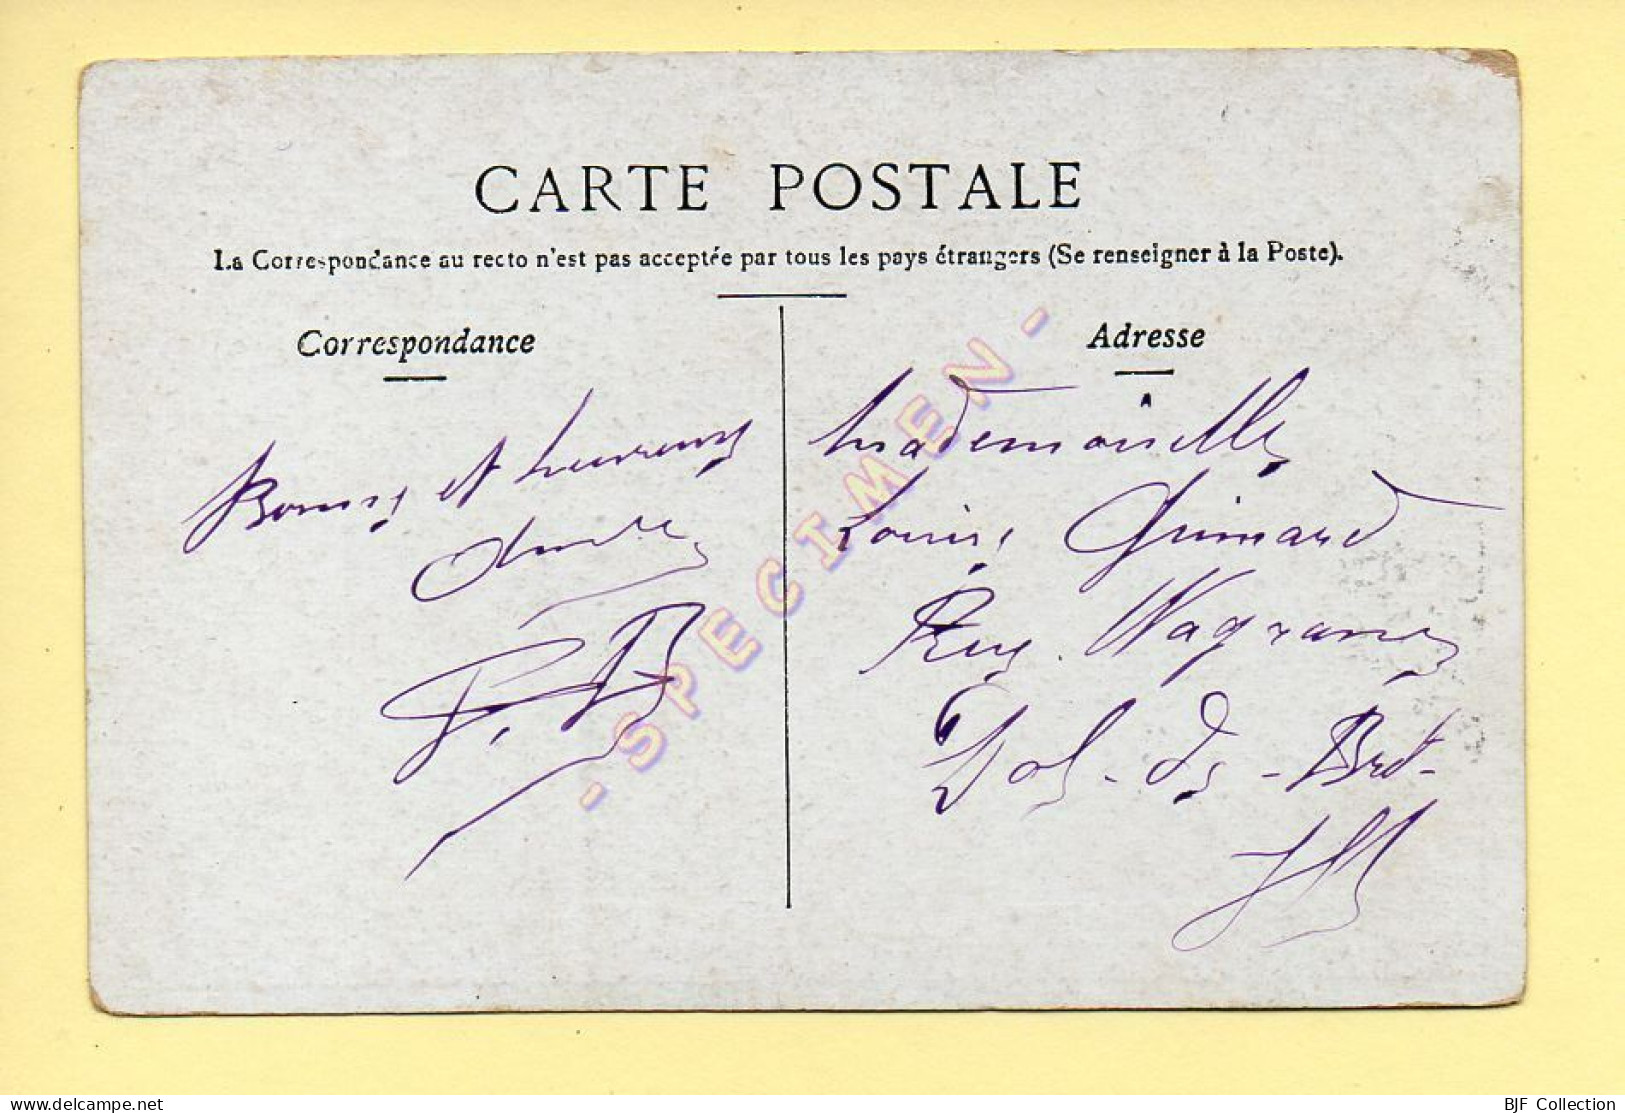 CARTE POSTALE
La Correspondance au recto n'est pas acceptée par tous les pays étrangers (Se renseigner à la Poste).
Correspondance
Bonne et heureuse
Année
Adresse
Mademoiselle
Louise Guimard
Rue Wagram
Dol-de-Bret-
- SPECIMEN -
delcampe.net
BJF Collection